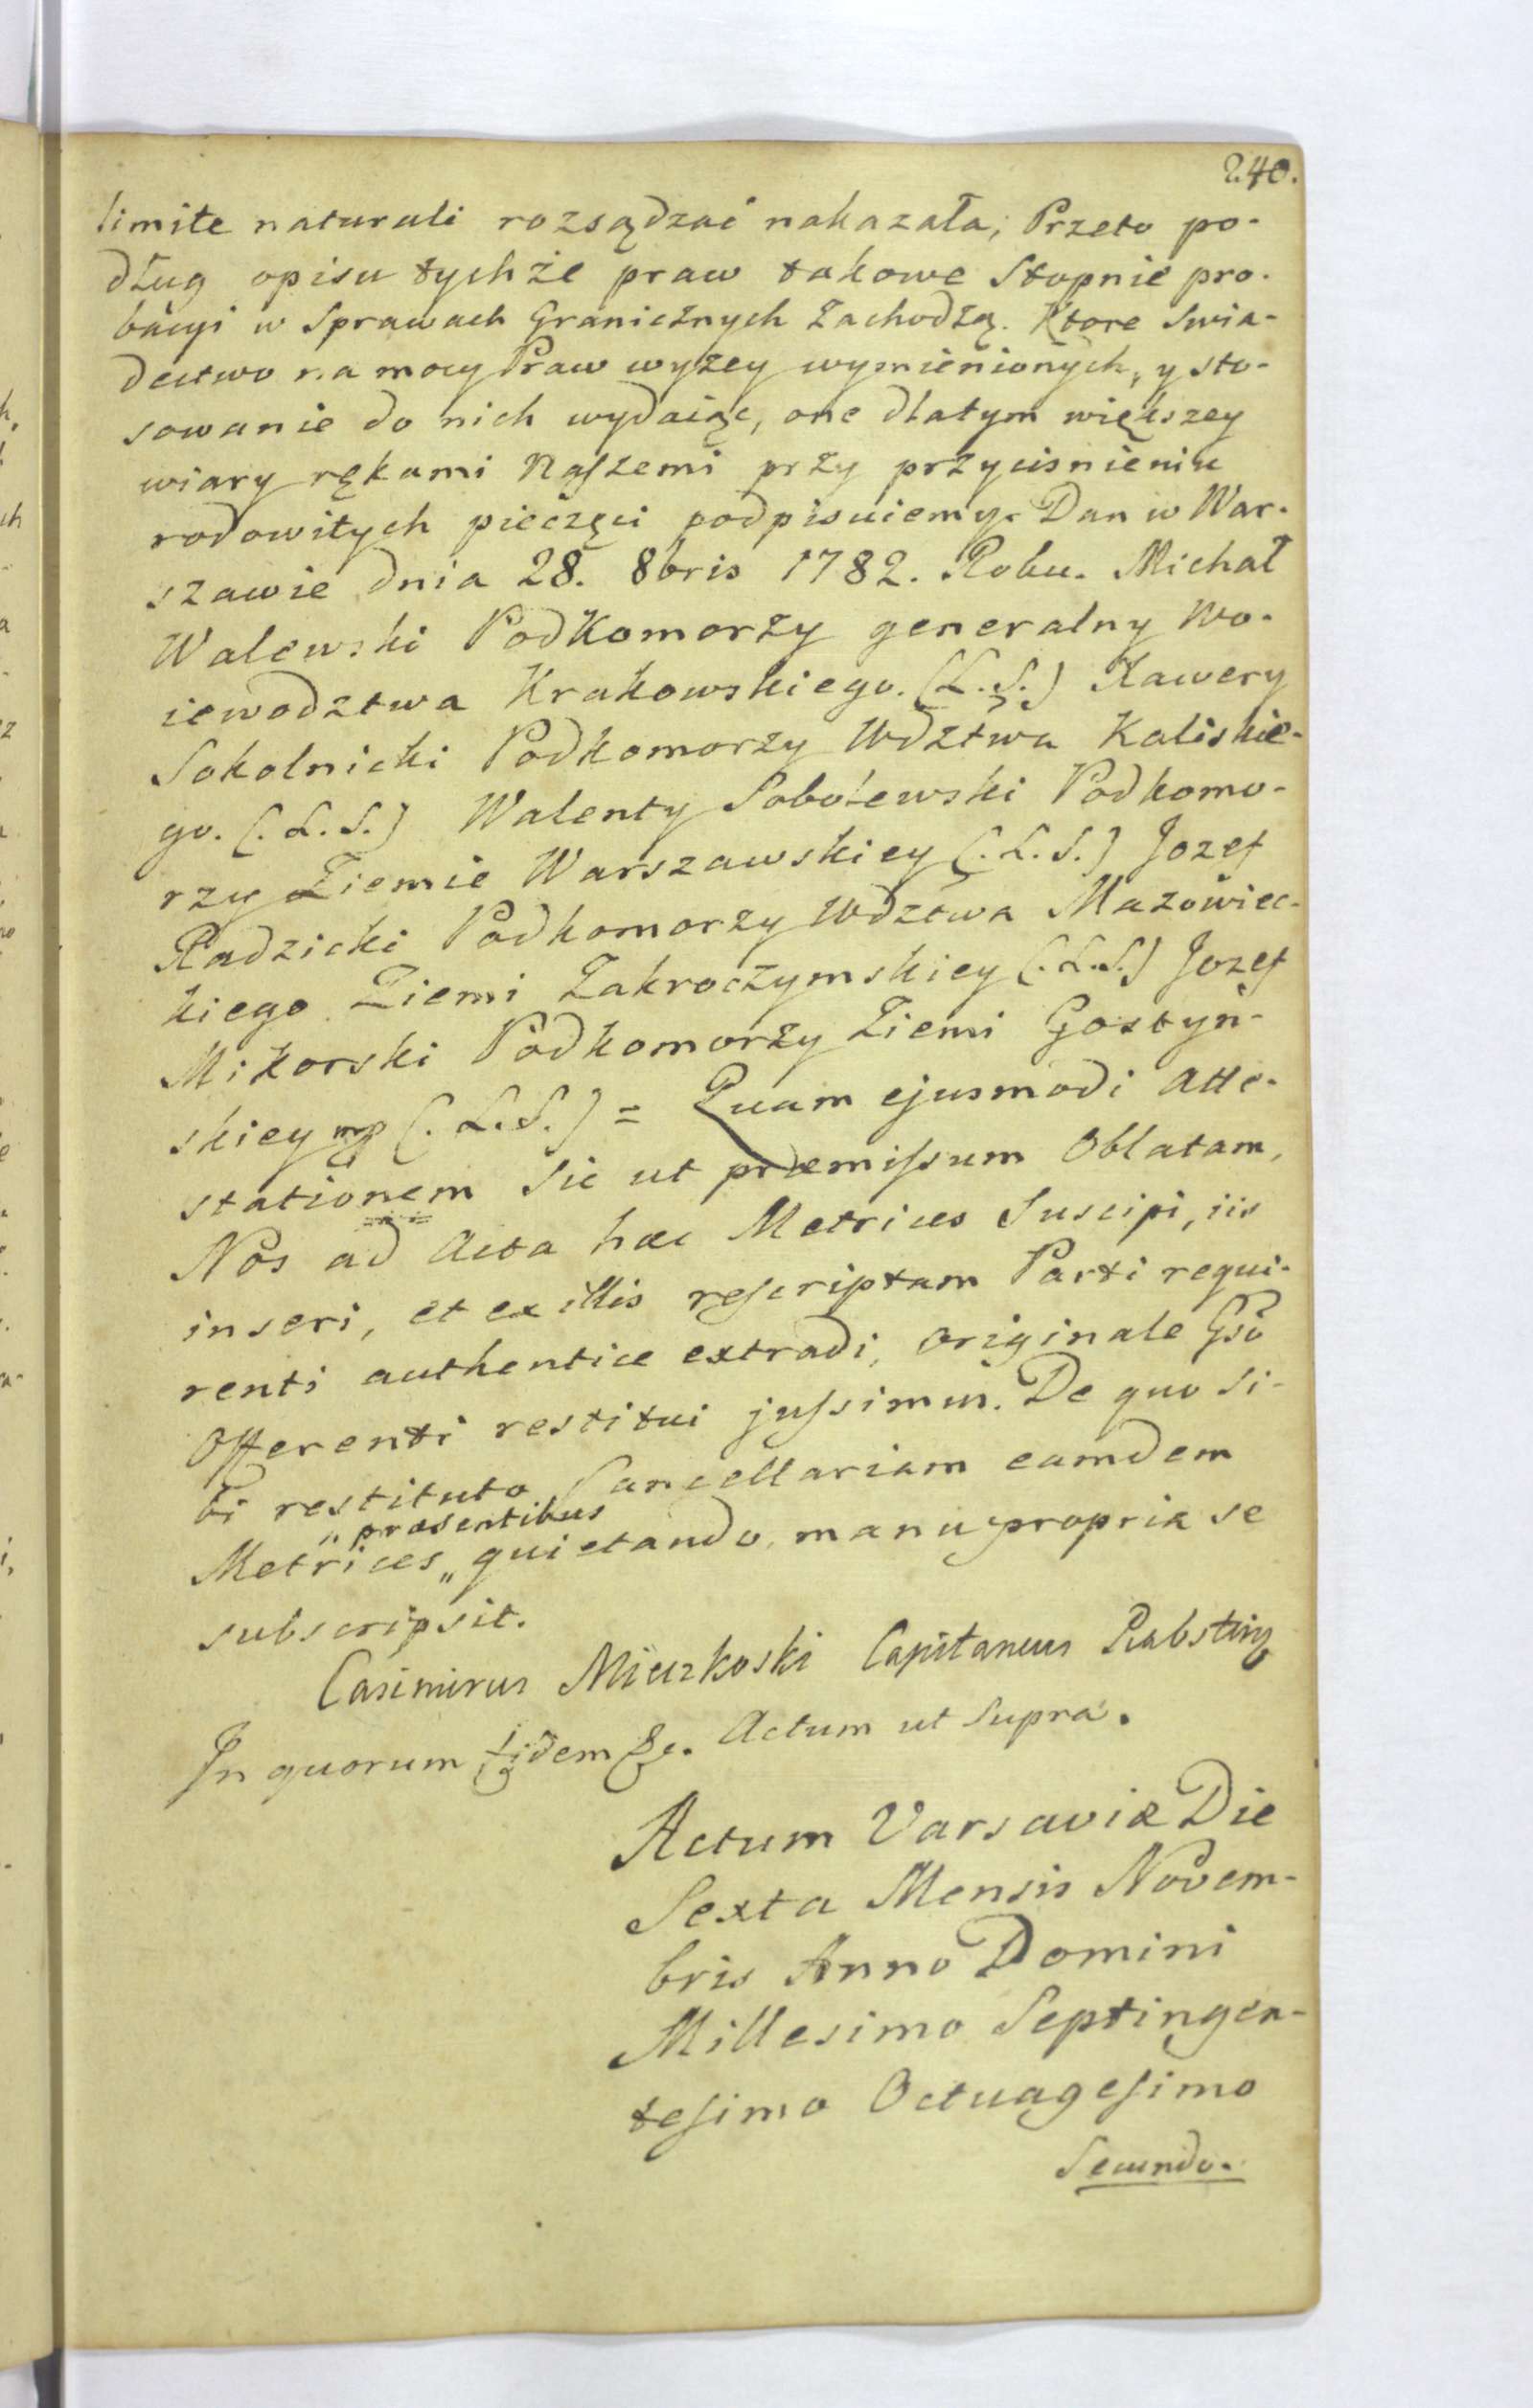 240.
limite naturali rozsądzać nakazała; Przeto po-
dług opisu tychże praw takowe Stopnie pro-
bacyi w Sprawach Granicżnych Zachodżą. Ktore Swia-
dectwo na mocy Praw wyżey wymienionych, y sto-
sowanie do nich wydaiąc, one dlatym większey
wiary rękami Naſzemi przy przycisnieniu
rodowitych pieczęci podpisuiemy. Dan w War-
szawie dnia 28. 8bris 1782. Roku. Michał
Walewski Podkomorży generalny Wo-
iewodztwa Krakowskiego. (L.S.) Xawery
Sokolnicki Podkomorży Wdztwa Kaliskie-
go. (:L.S.) Walenty Sobolewski Podkomo-
rzy Ziemie Warszawskiey (:L.S.) Jozef
Radzicki Podkomorzy Wdztwa Mazowiec-
kiego Ziemi Zakroczymskiey (:L.S.) Jozef
Mikorski Podkomorży Ziemi Gostyn-
skiey mp (:L.S.) = Quam ejusmodi Atte-
stationem Sic ut præmiſsum Oblatam,
Nos ad Acta hæc Metrices Suscipi, iis
inseri, et ex illis reſcriptam Parti requi-
renti authentice extradi, originale Gso
Offerenti restitui juſsimus. De quo Si-
bi restituto Cancellariam eamdem
„præsentibus
Metrices „ quietando, manu propria se
subscripsit.
Casimirus Mieczkoski Capitaneus
In quorum fidem &c. Actum ut Supra.
Actum Varsaviæ Die
Sexta Mensis Novem-
bris Anno Domini
Millesimo Septingen-
teſimo Octuageſimo
Secundo.